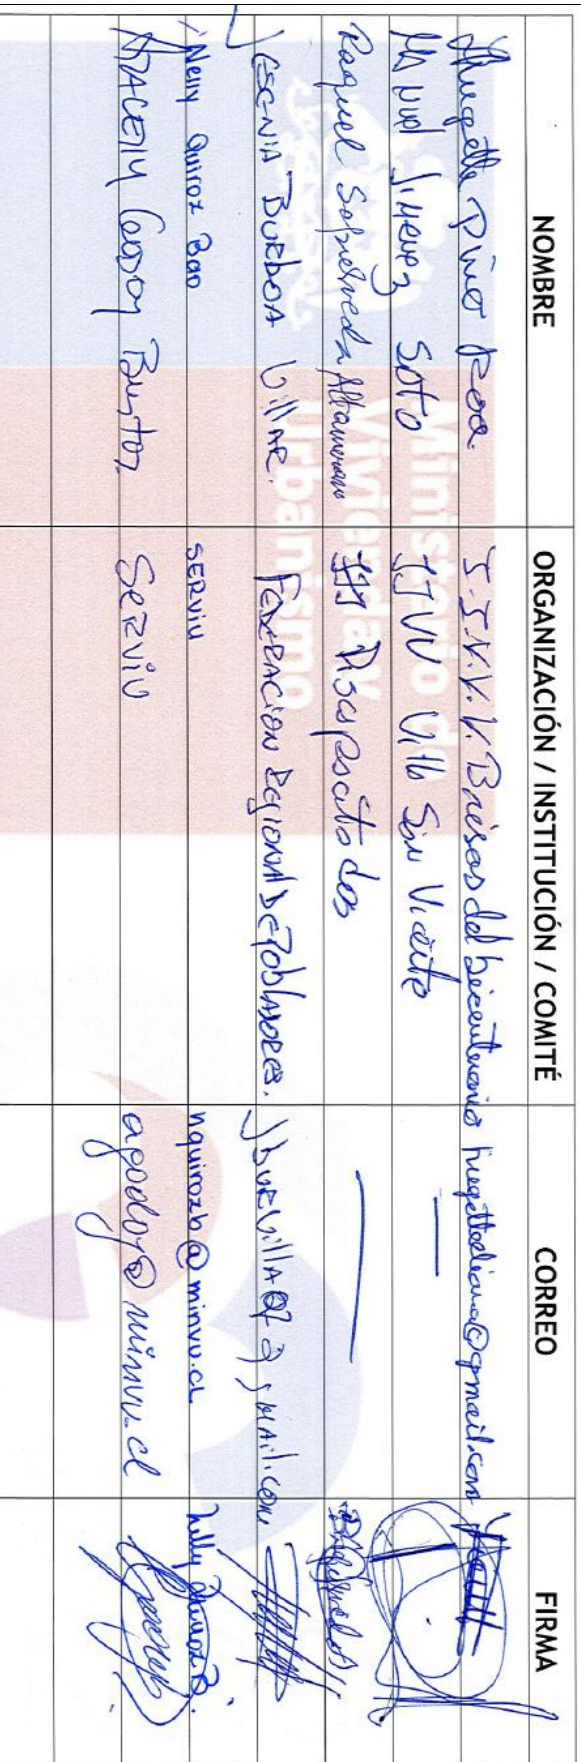 NOMBRE ORGANIZACIÓN / INSTITUCIÓN / COMITÉ CORREO FIRMA
Hugette Pino Roa. J.J.V.V. V. Brisas del bicentenario hugettediana@gmail.com
Manuel Jimenez Soto JJVV Villa San Vicente —
Raquel Sepulveda Altamirano JJJ Discapacitados —
YESENIA BURBOA VillAR. FEDERACION REGIONAL DE POBLADORES.
Nelly Quiroz Bao SERVIU nquirozb@minvu.cl Nelly Quiroz B.
ARACELLY GODOY Bustos SERVIU agodoy@minvu.cl
Ministerio de
Vivienda y
Urbanismo